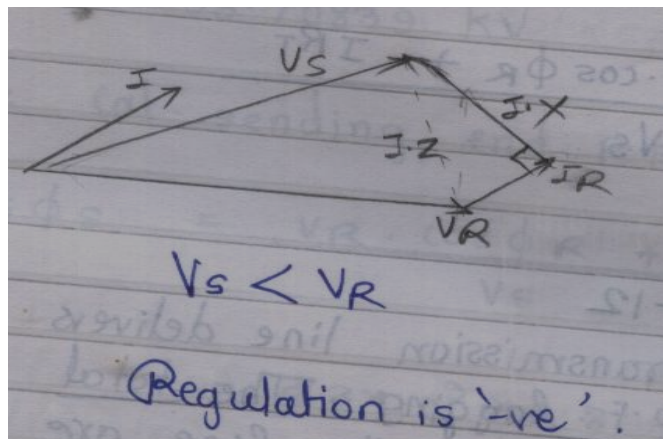 I
VS
I·X
I·Z
IR
VR
Vs < VR
Regulation is '-ve'.